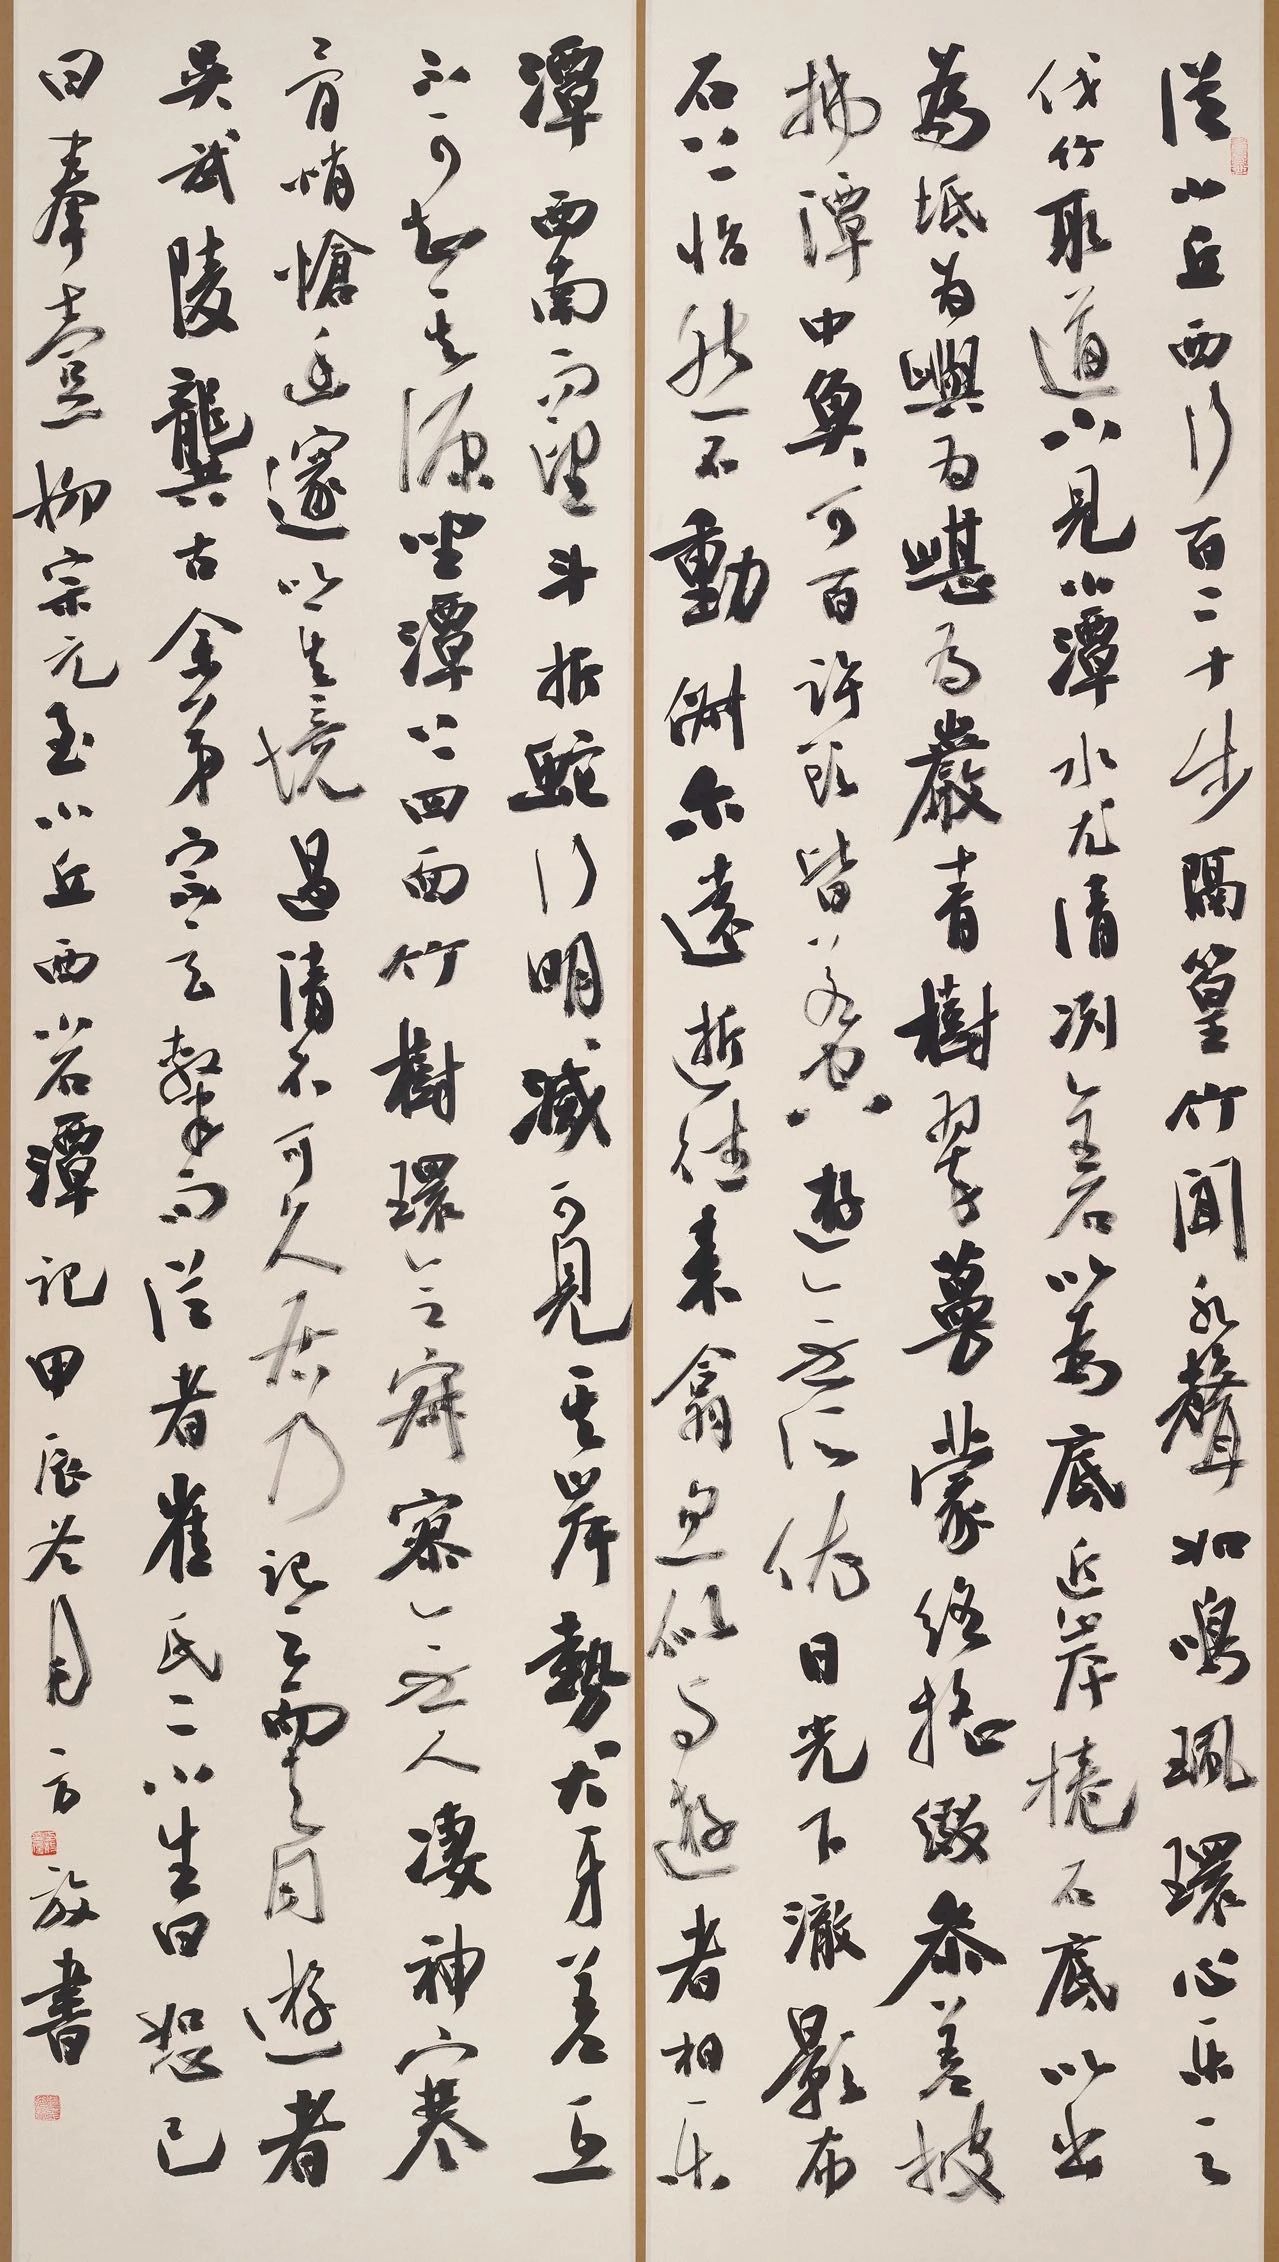 從小丘西行百二十步隔篁竹聞水聲如鳴珮環心樂之
伐竹取道下見小潭水尤清冽全石以為底近岸捲石底以出
為坻為嶼為嵁為巖青樹翠蔓蒙絡搖綴參差披
拂潭中魚可百許頭皆若空游無所依日光下澈影布
石上怡然不動俶尔遠逝往來翕忽似與遊者相樂
潭西南而望斗折蛇行明滅可見其岸勢犬牙差互
不可知其源坐潭上四面竹樹環合寂寥無人淒神寒
骨悄愴幽邃以其境過清不可久居乃記之而去同遊者
吳武陵龔古余弟宗玄隸而從者崔氏二小生曰恕己
曰奉壹柳宗元至小丘西小石潭記甲辰冬月方放書